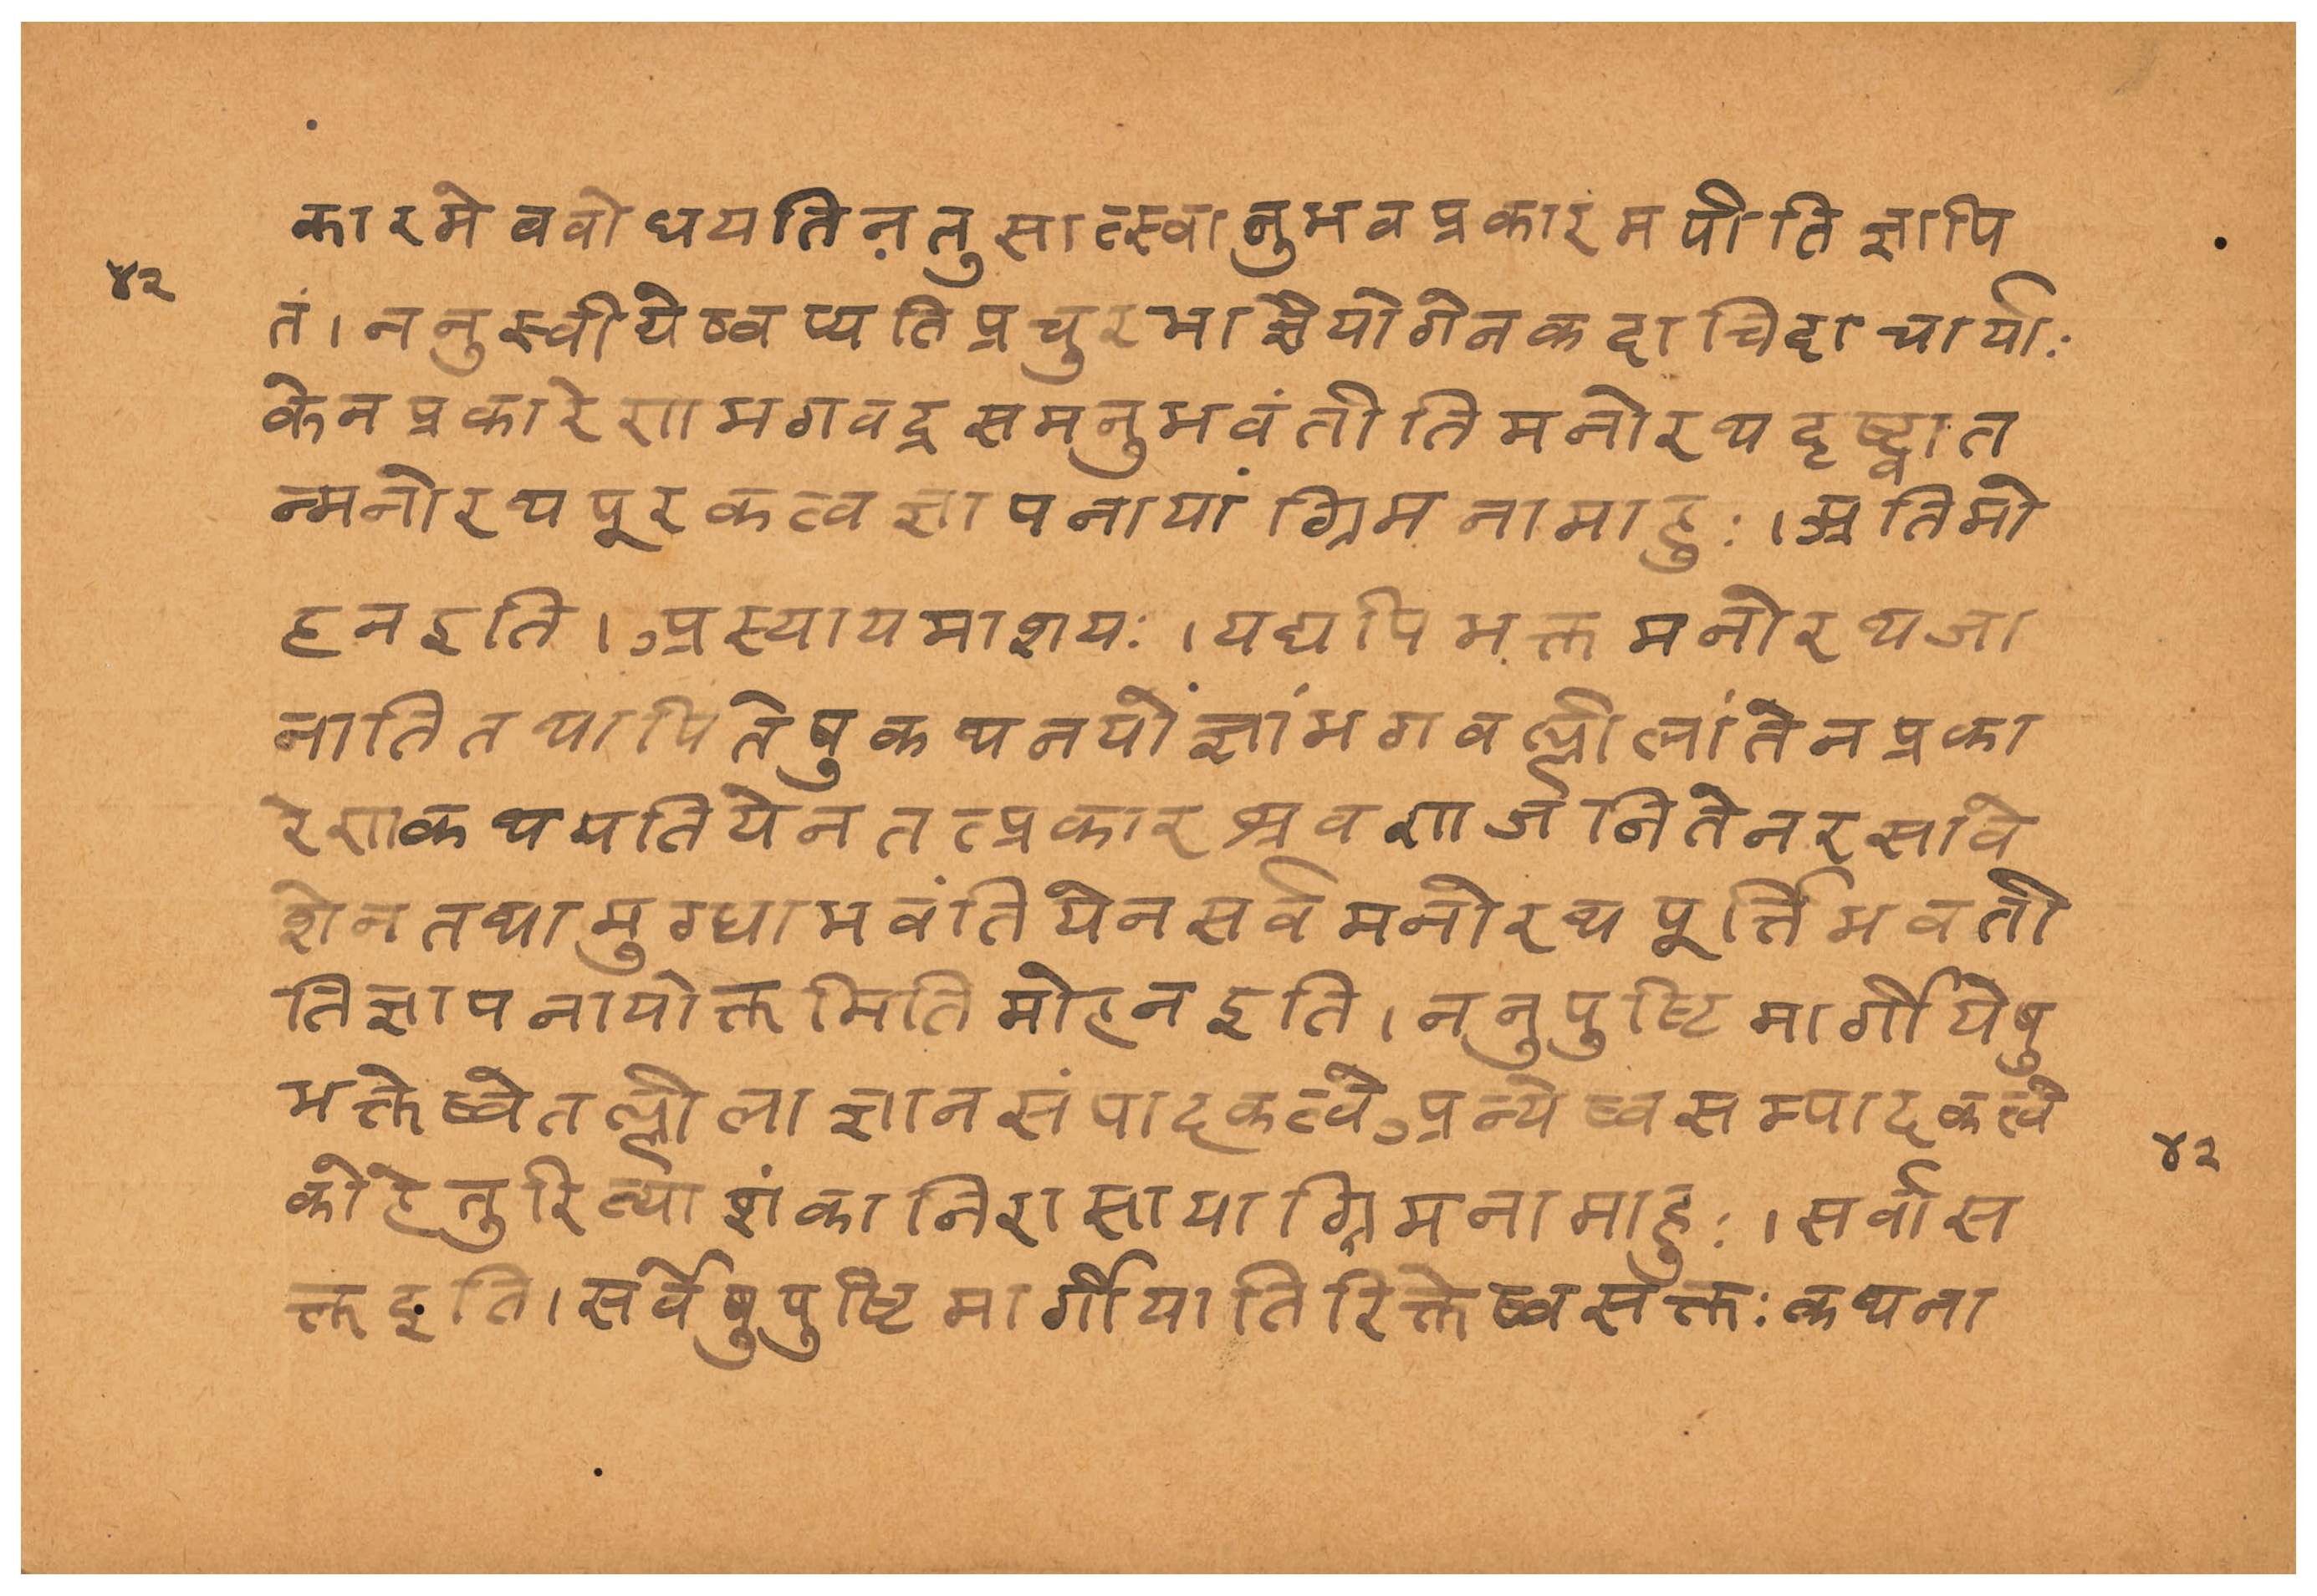 कारमेववोधयतिनतुसात्स्वानुभवप्रकारंमपीतिज्ञापि
४२
तं।ननुस्वीयेष्वप्यतिप्रचुरभाग्नैयोगेनकदाचिदाचार्याः
केनप्रकारेणभगवद्रसमनुभवंतीतिमनोरथदृष्ट्वात
न्मनोरथपूरकत्वज्ञापनायांग्रिमनामाहुः।अतिमो
हनइति।अस्यायमाशयः।यद्यपिभक्तमनोरथजा
नातितथापितेषुकथनयोंज्ञांभगवल्लीलांतेनप्रका
रेणकथयतियेनतत्प्रकारश्रवणार्जनितेनरसावे
शेनतथामुग्धाभवंतियेनसर्वमनोरथपूर्त्तिभवती
तिज्ञापनायोक्तमितिमोहनइति।ननुपुष्टिमार्गीयेषु
भक्तेष्वेतल्लीलाज्ञानसंपादकत्वेअन्येष्वसम्पादकत्वे
४२
कोहेतुरित्याशंकानिरासायाग्रिमनामाहुः।सर्वास
क्तइति।सर्वेषुपुष्टिमार्गीयातिरिक्तेष्वसक्तःकथना